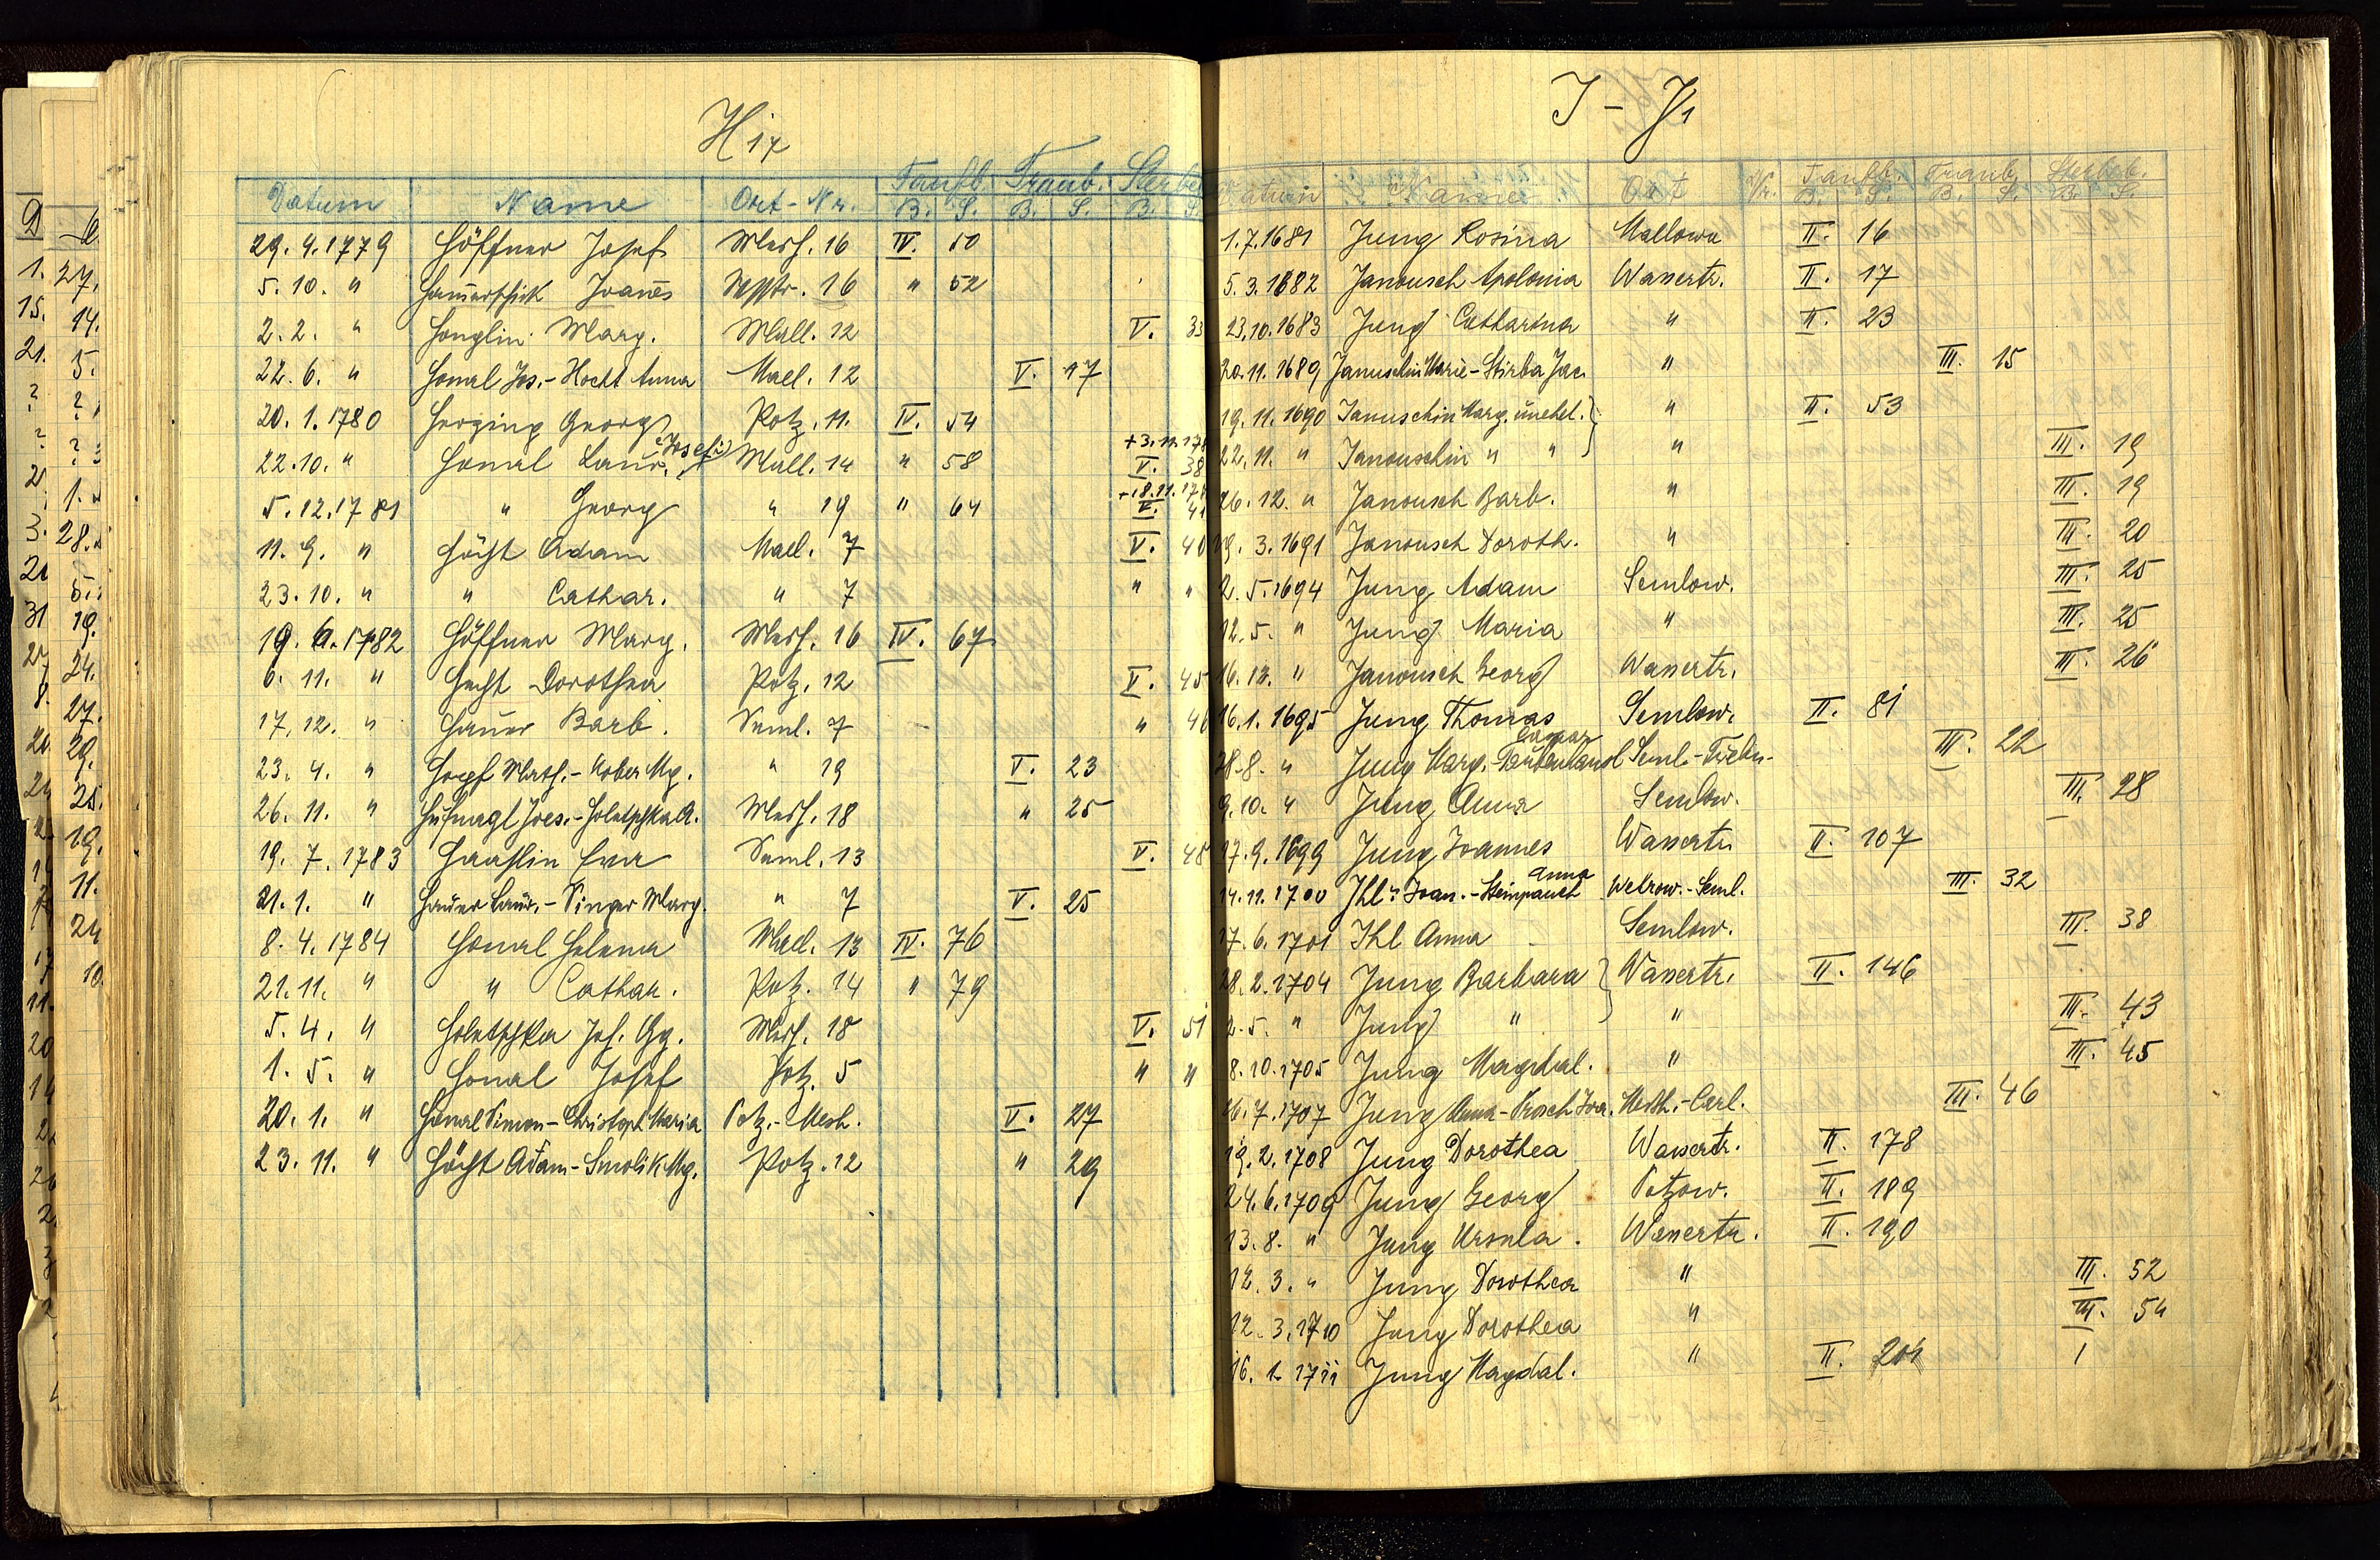 H 17
Datum Name Ort-Nr. Taufb. Traub. Sterbe
B. S. B. S. B. S.
29. 4. 1779 Höffner Josef Mersh. 16 IV. 50
5. 10. " Joanes 16 " 52
2. 2. " Honglin Marg. Mall. 12 V. 33
22. 6. " Honal Jos. - Hocht Anna Mael. 12 V. 17
20. 1. 1780 Georg Potz. 11. IV. 54
22. 10. " Honal Laur. (Josef) Mall. 14 " 58 + 3. 11. 178 V. 38
5. 12. 1781 " Georg " 19 " 64 + 18. 11. 178 V. 41
11. 9. " Höcht Adam Mael. 7 V. 40
23. 10. " " Cathar. " 7 " "
19. 6. 1782 Höffner Marg. Mersh. 16 IV. 67
6. 11. " Hecht Dorothea Potz. 12 V. 45
17. 12. " Hauer Barb. Seml. 7 " 46
23. 4. " Hopf Math. - Kober Mg. " 19 V. 23
26. 11. " Hufnagl Joes. - Holetschka A. Mersh. 18 " 25
19. 7. 1783 Haaslin Eva Seml. 13 V. 48
21. 1. " Hauer Laur. - Singer Marg. " 7 V. 25
8. 4. 1784 Honal Helena Mael. 13 IV. 76
21. 11. " " Cathar. Potz. 14 " 79
5. 4. " Holetschka Jos. Gg. Mersh. 18 V. 51
1. 5. " Honal Josef Potz. 5 " "
20. 1. " Honal Simon - Christoph Maria Potz. - Mersh. V. 27
23. 11. " Höcht Adam - Smolik Mg. Potz. 12 " 29
I - J 1
Datum Name Ort Nr. Taufb. Traub. Sterbeb.
B. S. B. S. B. S.
1. 7. 1681 Jung Rosina Mallowa II. 16
5. 3. 1682 Janousch Apolonia Wassertr. II. 17
23. 10. 1683 Jung Catharina " II. 23
20. 11. 1689 Januschin Marie - Stirba Jac. " III. 15
19. 11. 1690 Januschin Marg. unehel. } " II. 53
22. 11. " Janouschin " " " III. 19
26. 12. " Janousch Barb. " III. 19
19. 3. 1691 Janousch Doroth. " III. 20
2. 5. 1694 Jung Adam Semlow. III. 25
12. 5. " Jung Maria " III. 25
16. 12. " Janousch Georg Wassertr. III. 26
16. 1. 1695 Jung Thomas Semlow. II. 81
28. 8. " Jung Marg. - Taubenhansl Caspar Seml. - III. 22
9. 10. " Jung Anna Semlow. III. 28
17. 9. 1699 Jung Joannes Wassertr. II. 107
14. 11. 1700 Ihl: Joan. - Steinpauch Anna Welrow. - Seml. III. 32
17. 6. 1701 Ihl Anna Semlow. III. 38
28. 2. 1704 Jung Barbara } Wassertr. II. 146
2. 5. " Jung " " III. 43
8. 10. 1705 Jung Magdal. " III. 45
26. 7. 1707 Jung Anna - Prosch Joa. Mersh. - Carl. III. 46
19. 2. 1708 Jung Dorothea Wassertr. II. 178
24. 6. 1709 Jung Georg Potzow. II. 189
13. 8. " Jung Ursula. Wassertr. II. 190
12. 3. " Jung Dorothea " III. 52
12. 3. 1710 Jung Dorothea " III. 54
16. 1. 1711 Jung Magdal. " II. 204